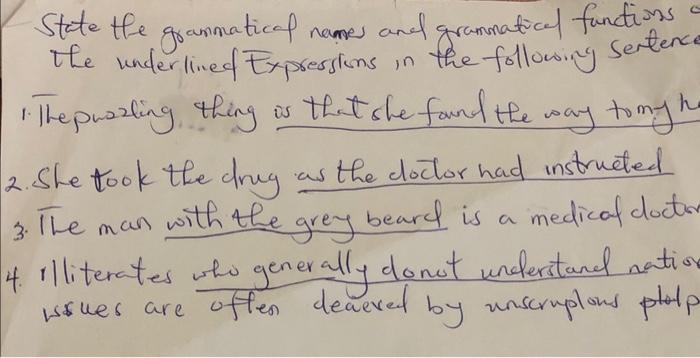 State the grammatical names and grammatical functions
the underlined Expressions in the following Sentence
1. The puzzling thing is that she found the way to my h
2. She took the drug as the doctor had instructed
3. The man with the grey beard is a medical doctor
4. Illiterates who generally do not understand nation
issues are often deceived by unscruplous